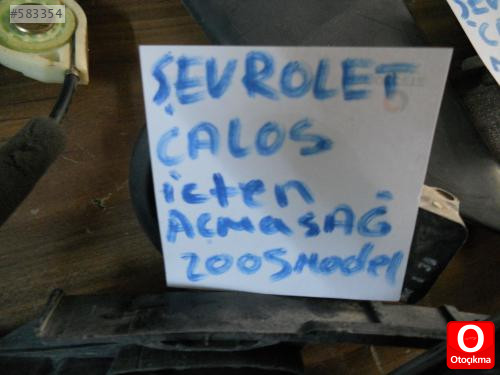 #583354
ŞEVROLET
ÇALOS
içten
AÇMA SAĞ
2005 Model
O
Otoçıkma